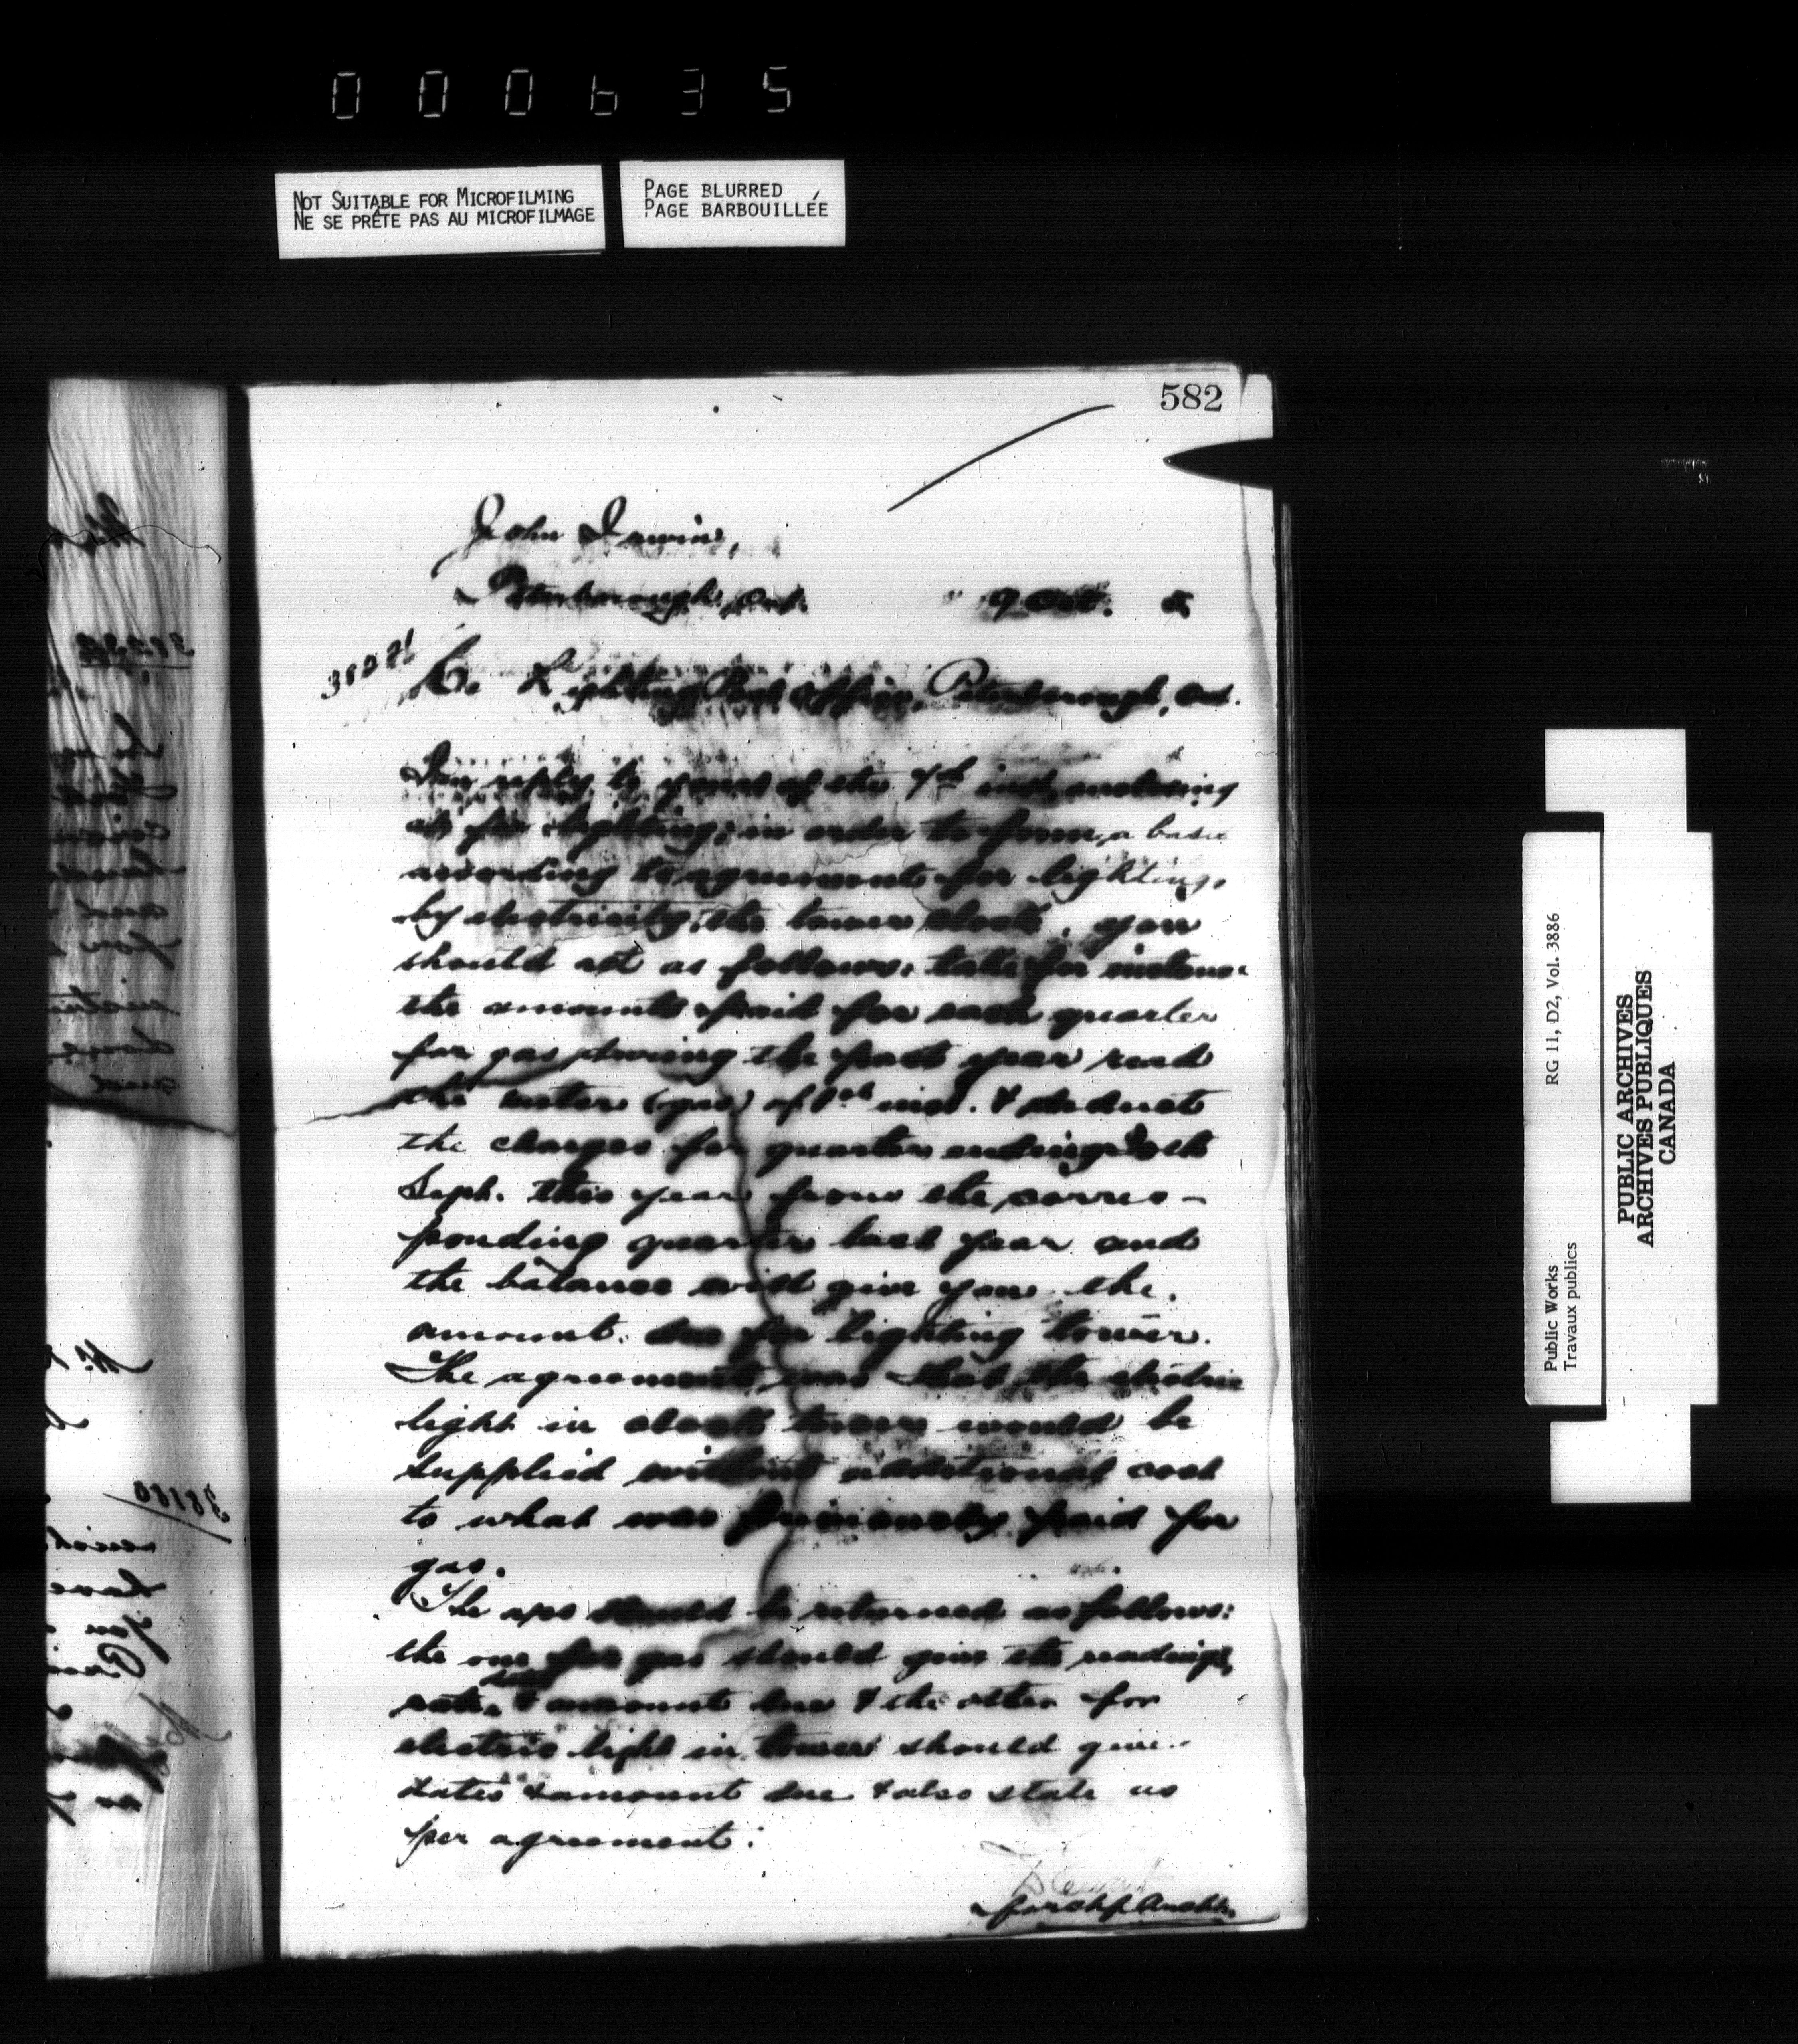 000635
NOT SUITABLE FOR MICROFILMING
NE SE PRÊTE PAS AU MICROFILMAGE
PAGE BLURRED
PAGE BARBOUILLÉE
582
John Irwin,
Peterborough, Ont. 9 Oct.
Re Lighting Post Office, Peterborough, Ont.
In reply to yours of the 7th inst. enclosing
a/cs for lighting; in order to form a basis
according to agreement for lighting,
by electricity, the tower clock, you
should act as follows: take for instance
the amounts paid for each quarter
for gas during the past year read
the meter (gas) of 1st inst. & deduct
the charges for quarter ending 30th
Sept. this year from the corres-
ponding quarter last year and
the balance will give you the
amount due for lighting tower.
The agreement was that the electric
light in clock tower would be
supplied without additional cost
to what was previously paid for
gas.
The a/cs should be returned as follows:
the one for gas should give the readings,
rate, & amount due & the other for
electric light in tower should give
dates & amount due & also state as
per agreement.
D Ewart
for Chf Archt.
38180
Public Works
Travaux publics
RG 11, D2, Vol. 3886
PUBLIC ARCHIVES
ARCHIVES PUBLIQUES
CANADA